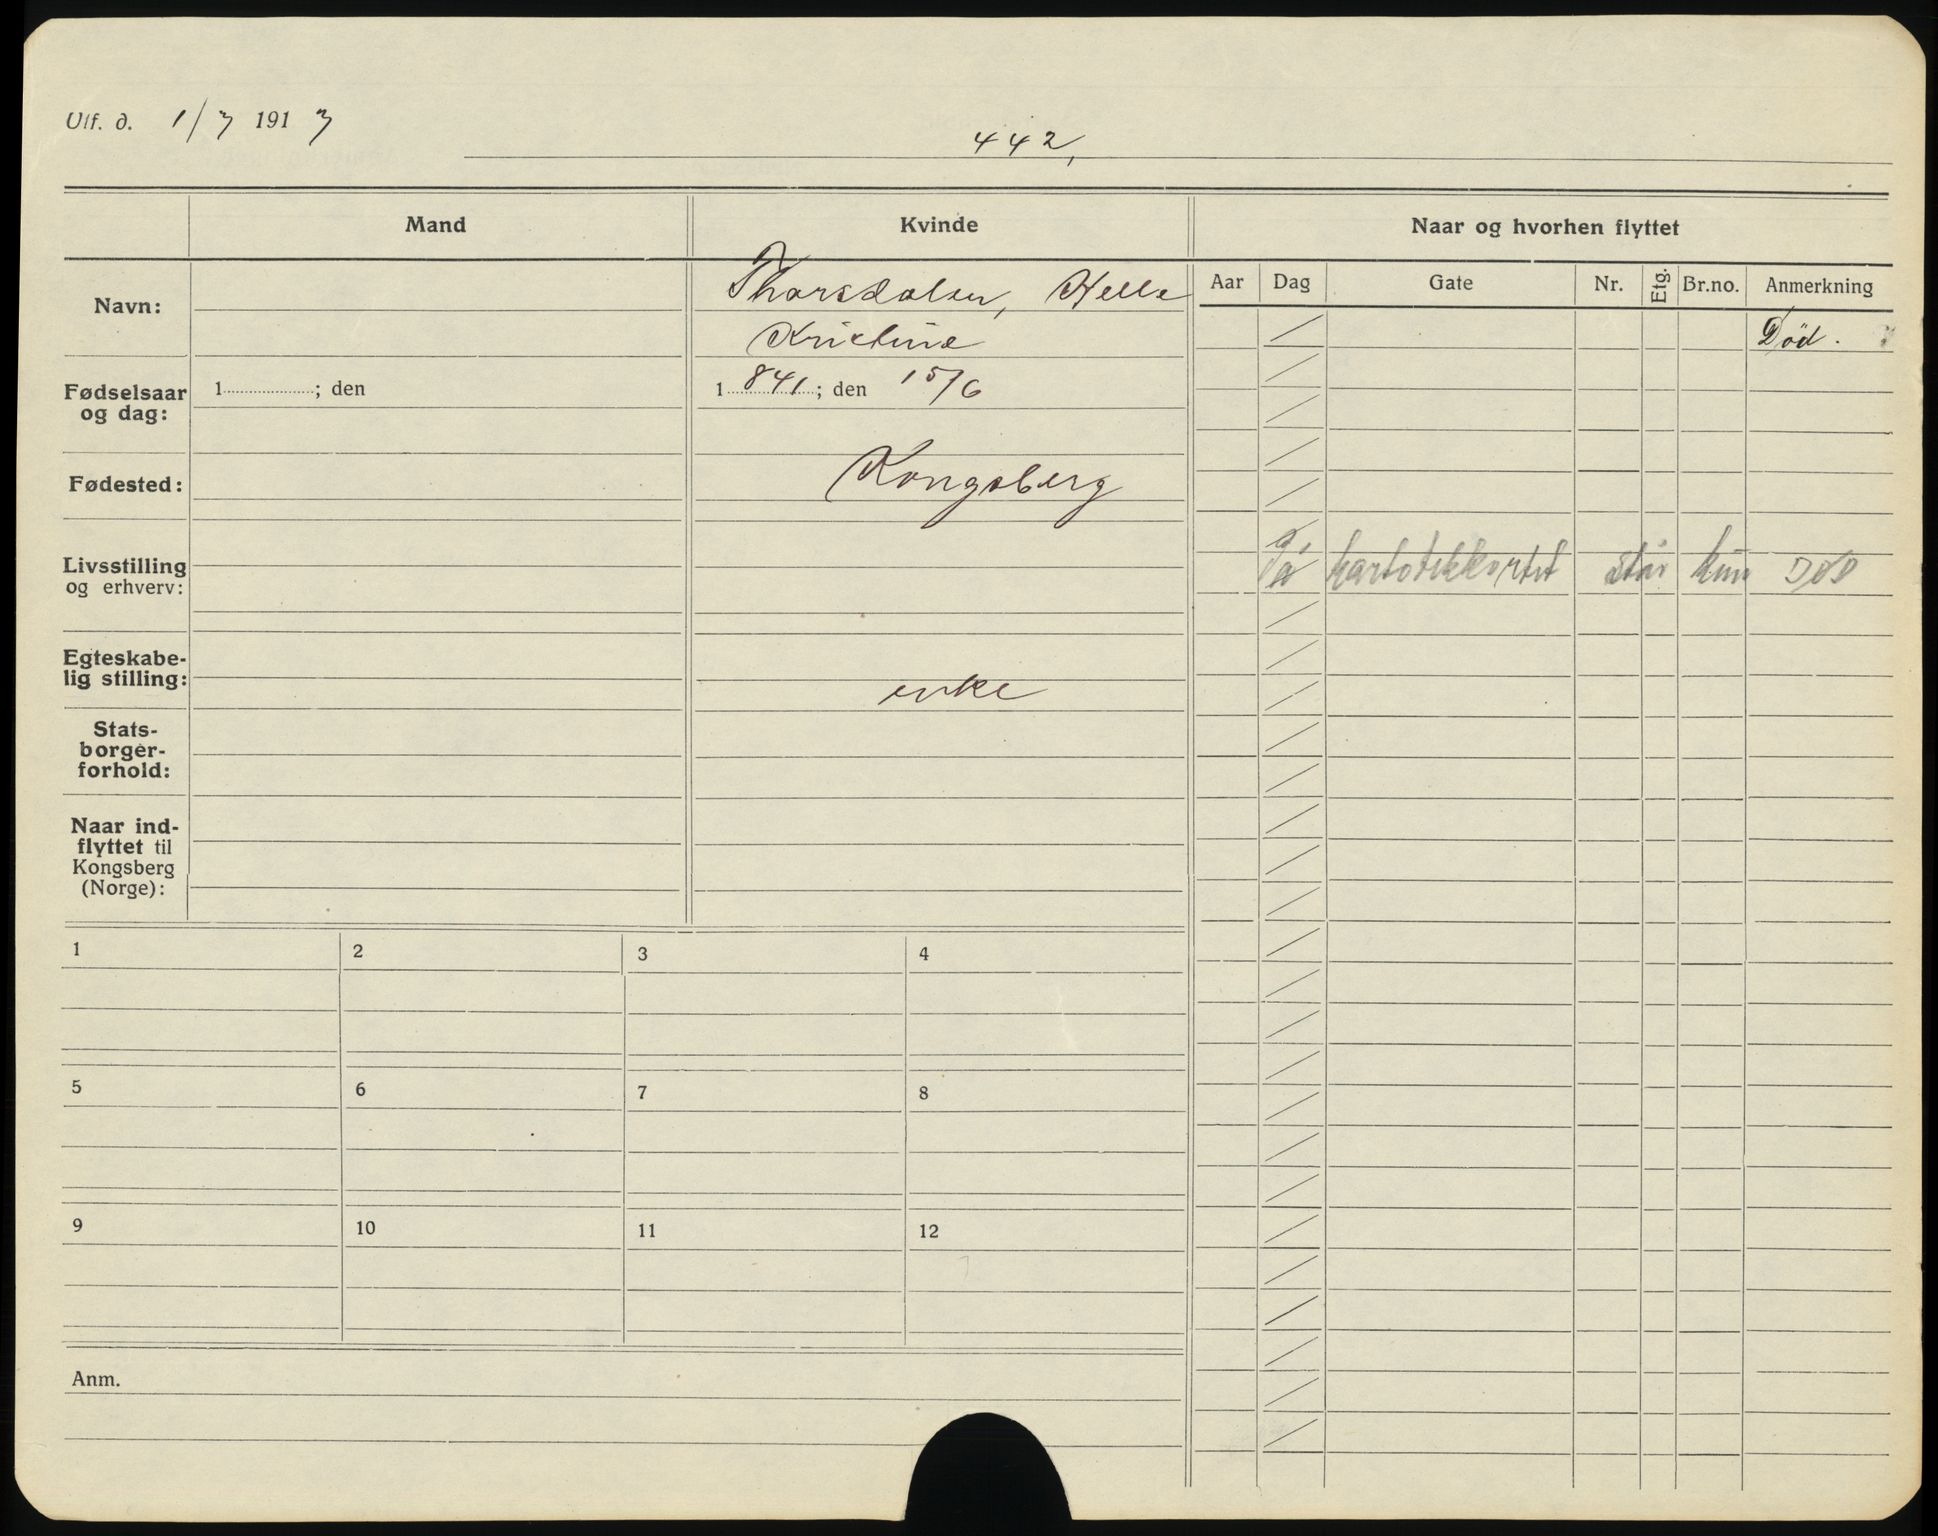 Utf. d. 1/7 191 7
442,
Mand Kvinde Naar og hvorhen flyttet
Aar Dag Gate Nr. Etg. Br.no. Anmerkning
Navn: Thorsdalen, Helle
Kristine
Død.
Fødselsaar
og dag:
1 ; den
1 841 ; den 15/6
Fødested: Kongsberg
På kartotekkortet står kun DØD
Livsstilling
og erhverv:
Egteskabe-
lig stilling:
enke
Stats-
borger-
forhold:
Naar ind-
flyttet til
Kongsberg
(Norge):
1 2 3 4
5 6 7 8
9 10 11 12
Anm.